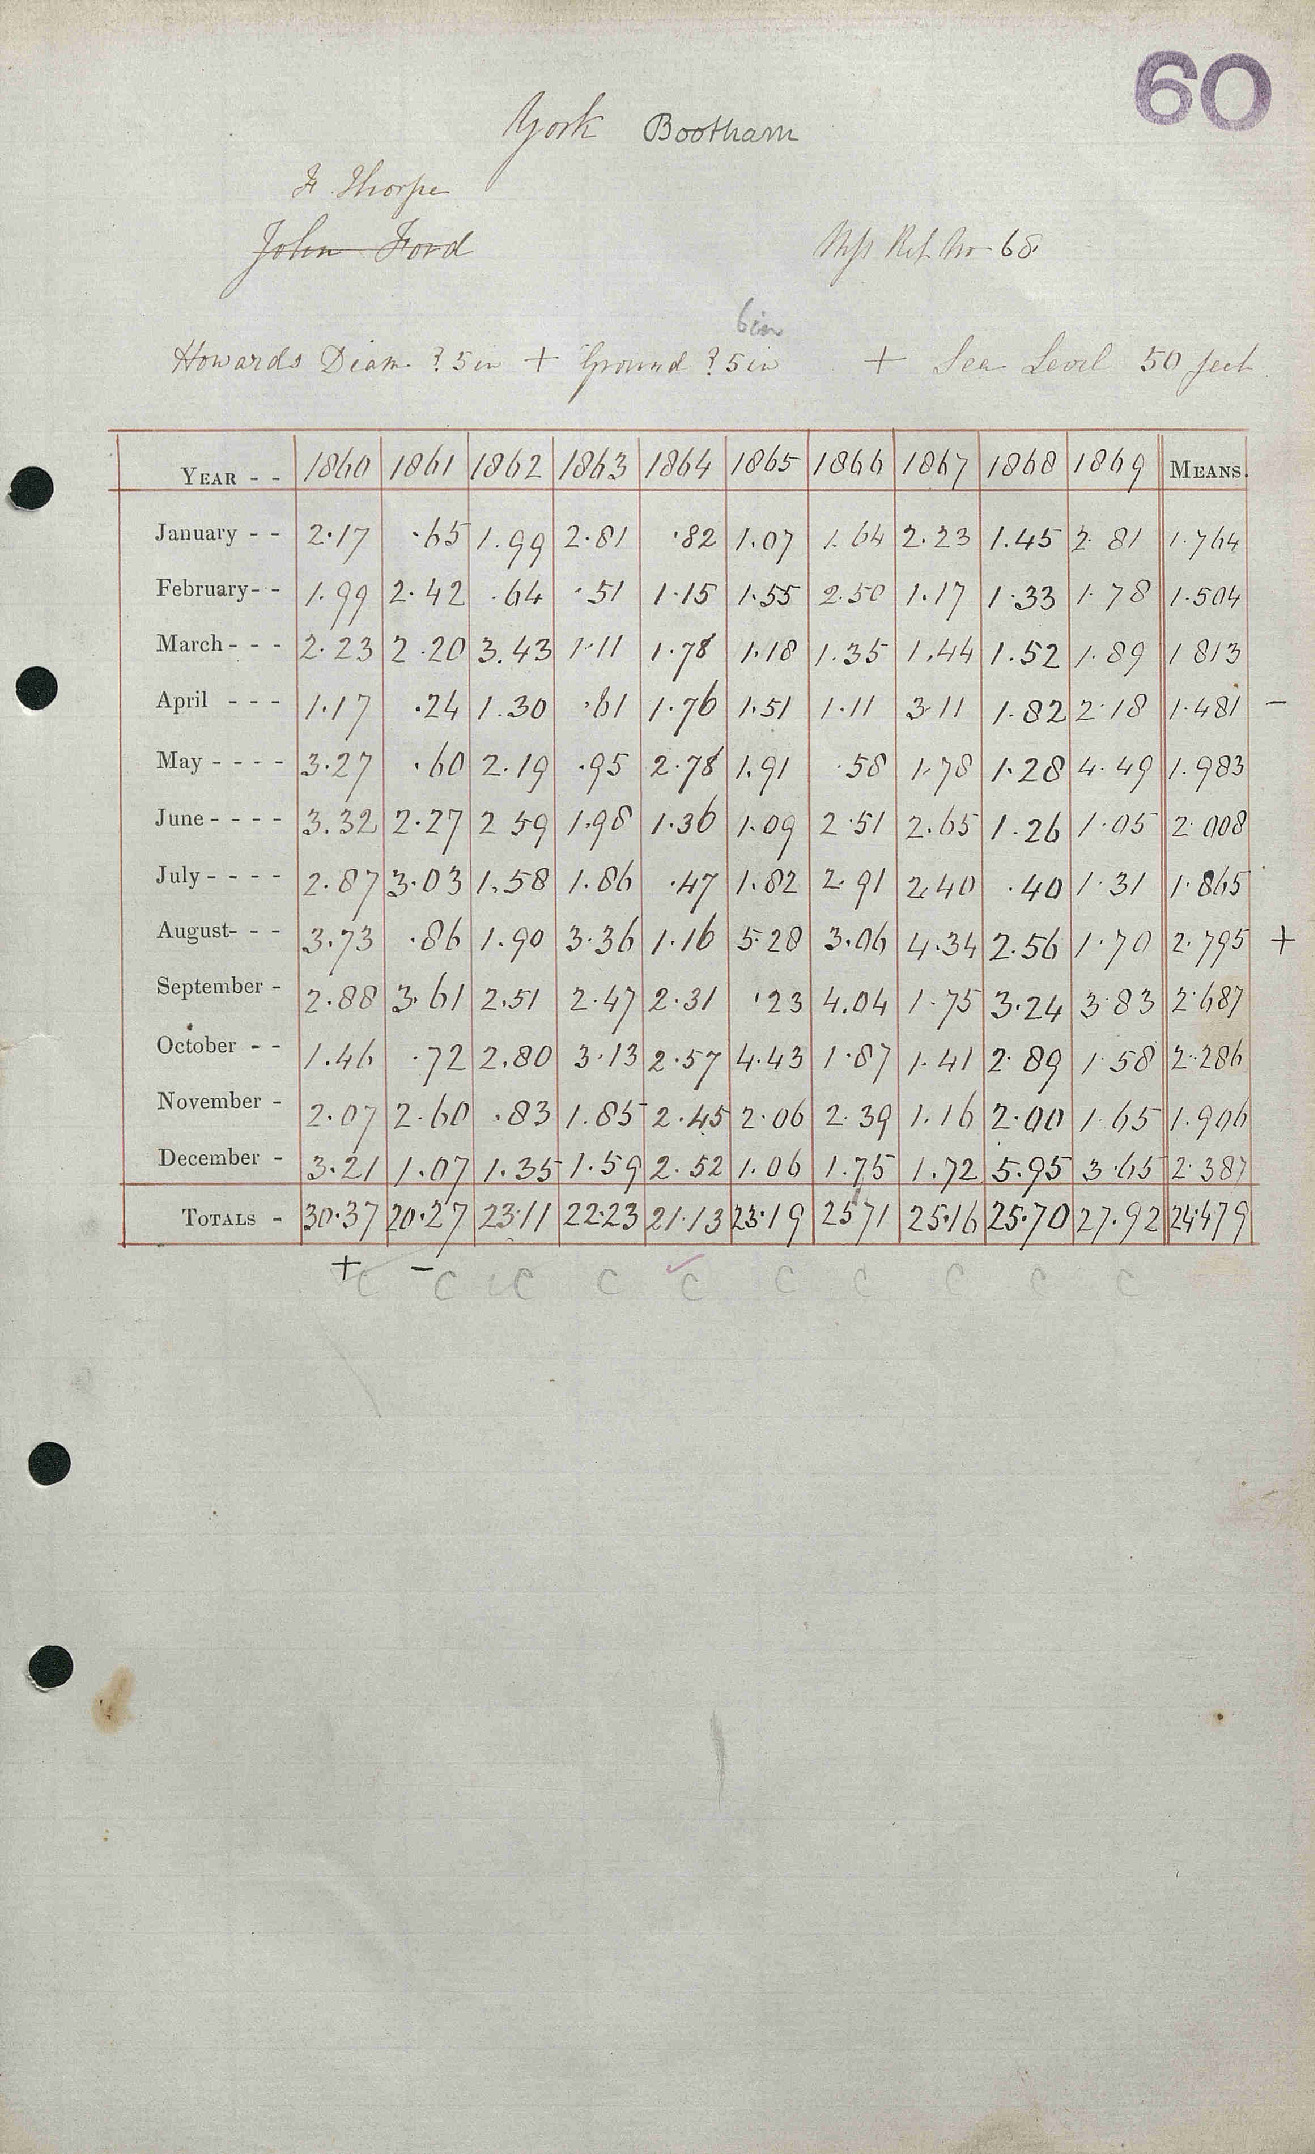 60
York Bootham
F. Thorpe
John Ford
Mss Ref. No 68
6in
Howards Diam. ? 5in + Ground ? 5in + Sea Level 50 feet
YEAR - - 1860 1861 1862 1863 1864 1865 1866 1867 1868 1869 MEANS.
January - - 2.17 .65 1.99 2.81 .82 1.07 1.64 2.23 1.45 2.81 1.764
February - - 1.99 2.42 .64 .51 1.15 1.55 2.50 1.17 1.33 1.78 1.504
March - - - 2.23 2.20 3.43 1.11 1.78 1.18 1.35 1.44 1.52 1.89 1 813
April - - - 1.17 .24 1.30 .61 1.76 1.51 1.11 3.11 1.82 2.18 1.481 -
May - - - - 3.27 .60 2.19 .95 2.78 1.91 .58 1.78 1.28 4.49 1.983
June - - - - 3.32 2.27 2 59 1.98 1.36 1.09 2.51 2.65 1.26 1.05 2.008
July - - - - 2.87 3.03 1.58 1.86 .47 1.82 2.91 2.40 .40 1.31 1.865
August - - - 3.73 .86 1.90 3.36 1.16 5.28 3.06 4.34 2.56 1.70 2.795 +
September - 2.88 3.61 2.51 2.47 2.31 .23 4.04 1.75 3.24 3.83 2.687
October - - 1.46 .72 2.80 3.13 2.57 4.43 1.87 1.41 2.89 1.58 2.286
November - 2.07 2.60 .83 1.85 2.45 2.06 2.39 1.16 2.00 1.65 1.906
December - 3.21 1.07 1.35 1.59 2.52 1.06 1.75 1.72 5.95 3.65 2.387
TOTALS - 30.37 20.27 23.11 22.23 21.13 23.19 25 71 25.16 25.70 27.92 24.479
+ C - C C C C C C C C C